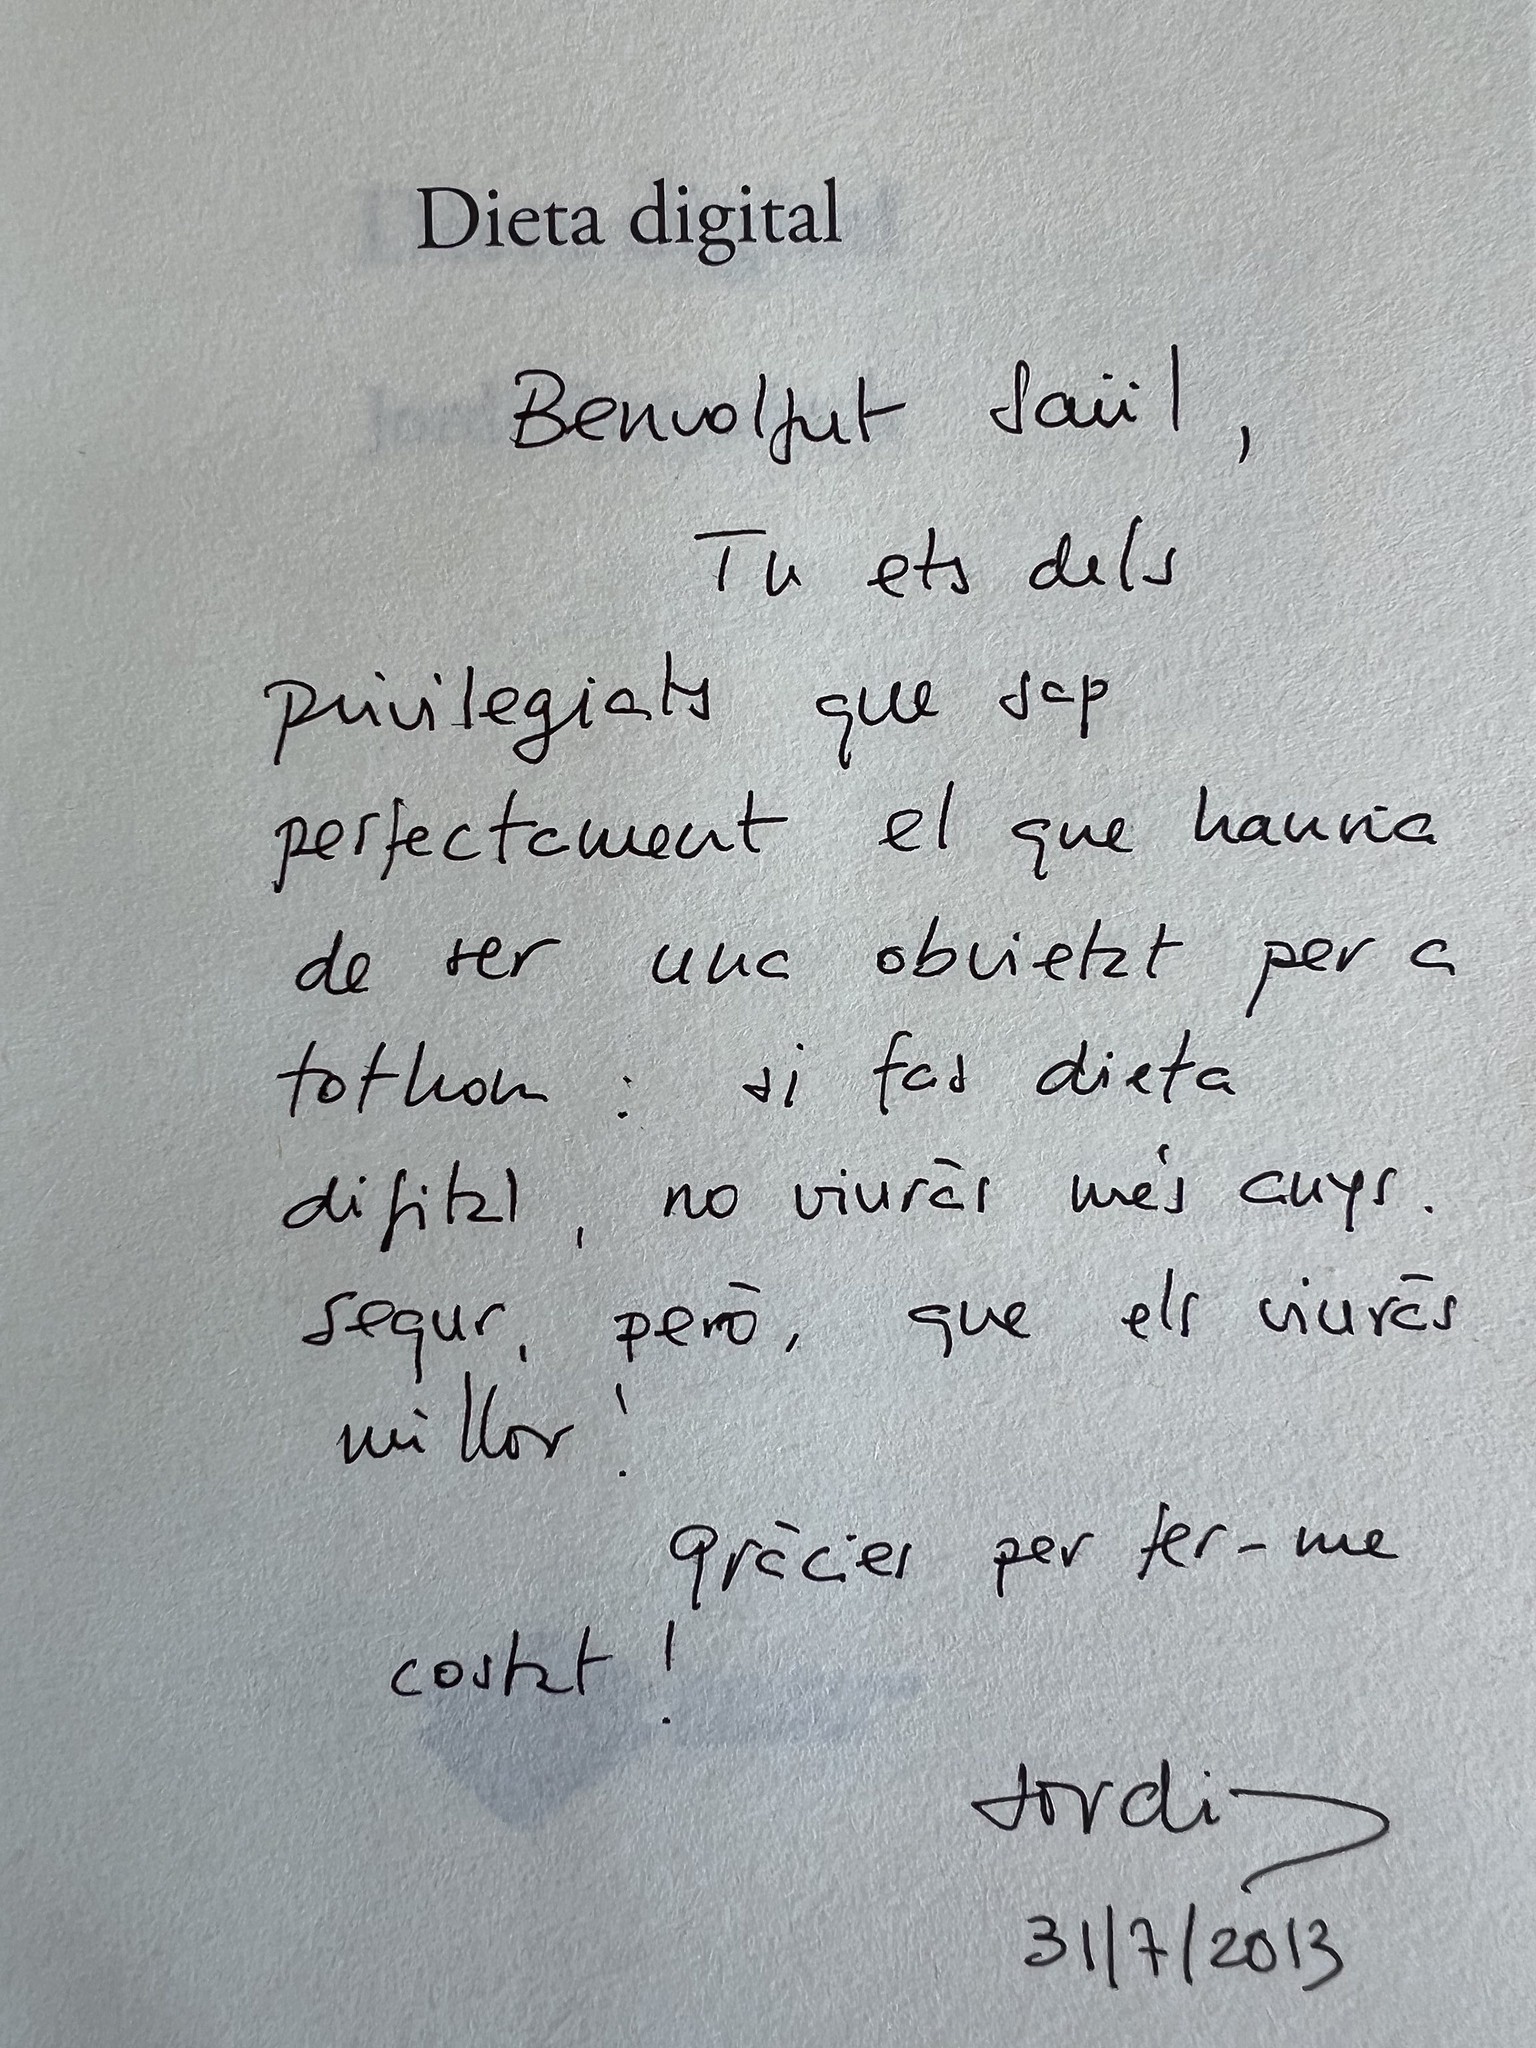 Dieta digital
Benvolgut Saül,
Tu ets dels
privilegiats que sap
perfectament el que hauria
de ser una obvietat per a
tothom: si fas dieta
digital, no viuràs més anys.
Segur, però, que els viuràs
millor!
Gràcies per fer-me
costat!
Jordi
31/7/2013